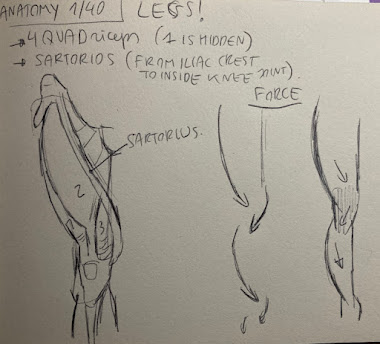 ANATOMY 1/40 LEGS!
→ 4 QUADriceps (1 IS HIDDEN)
→ SARTORIOS (FROM ILIAC CREST
TO INSIDE KNEE JOINT).
FORCE
SARTORIUS.
2
1
3